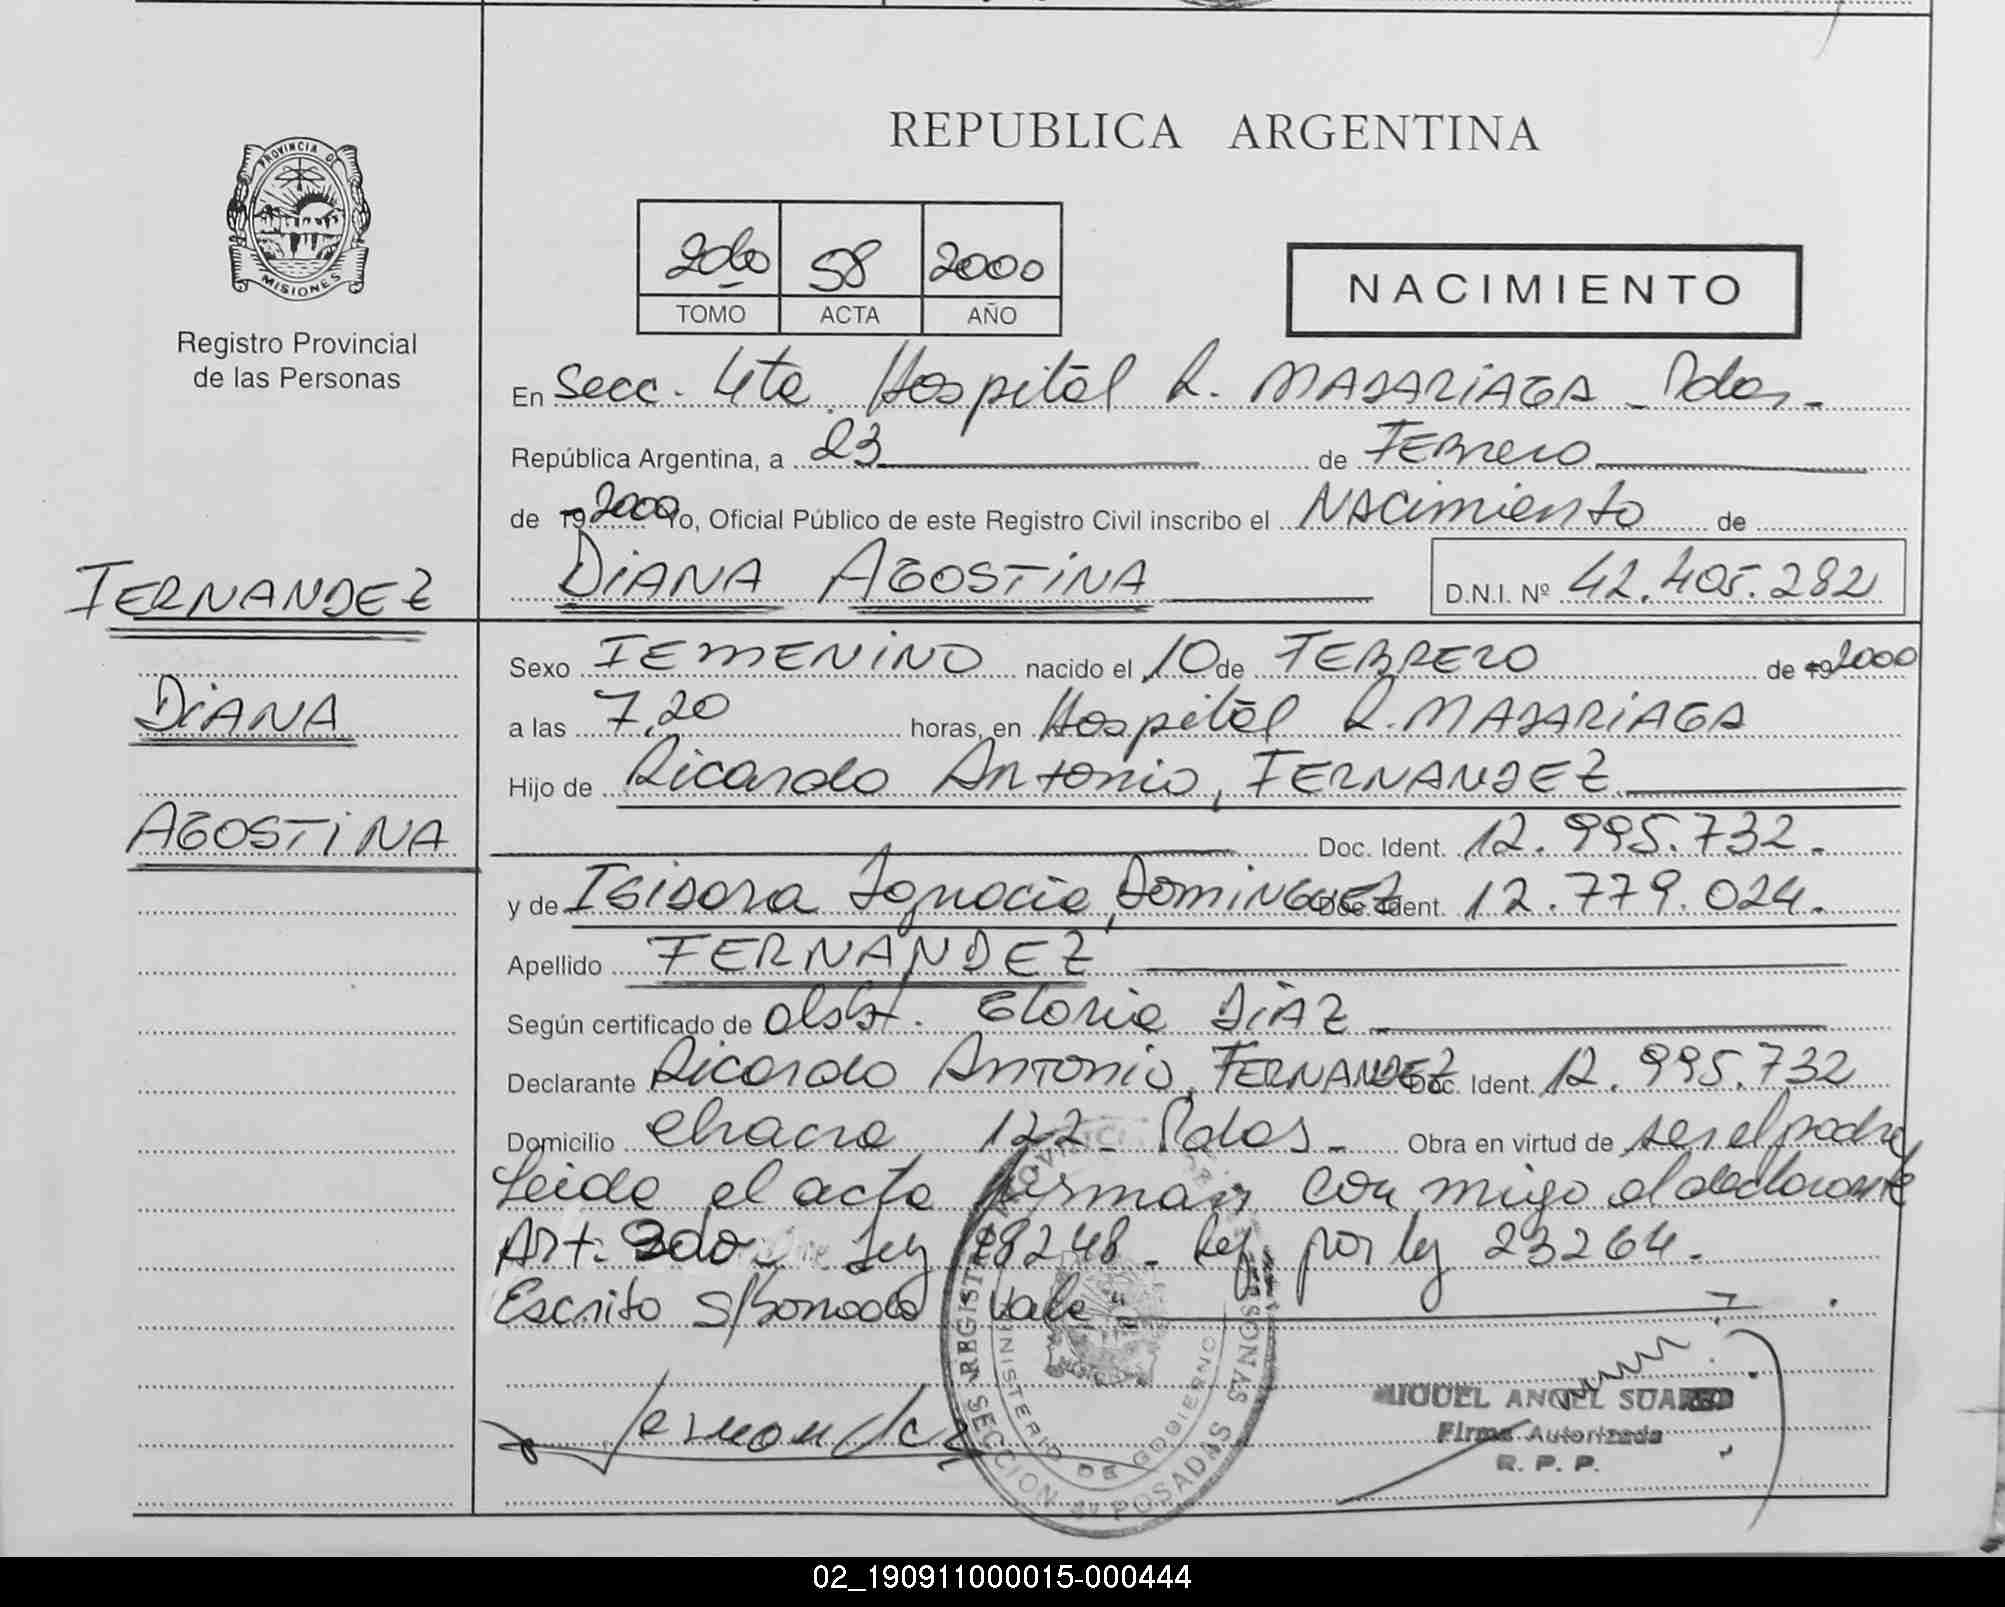 REPUBLICA ARGENTINA
PROVINCIA DE
MISIONES
Registro Provincial
de las Personas
2do 58 2000
TOMO ACTA AÑO
NACIMIENTO
En Secc. 4ta. Hospital R. MADARIAGA - Pdas -
República Argentina, a 23 de FEBrero
de 19 2000 Yo, Oficial Público de este Registro Civil inscribo el NACimiento de
DIANA AGOSTINA D.N.I. Nº 42.405.282
FERNANDEZ
DIANA
AGOSTINA
Sexo FEMENINO nacido el 10 de FEBRERO de 19 2000
a las 7,20 horas, en Hospital R. MADARIAGA
Hijo de Ricardo Antonio, FERNANDEZ
Doc. Ident. 12.995.732.
y de Isidora Ignacia, DOMINGUEZ Doc. Ident. 12.779.024.
Apellido FERNANDEZ
Según certificado de obst. Gloria DIAZ
Declarante Ricardo Antonio, FERNANDEZ Doc. Ident. 12.995.732
Domicilio chacra 122 Pdas - Obra en virtud de ser el padre
Leida el acta firman conmigo el declarante
Art. 2do Ley 18248 - Ref. por ley 23264.
Escrito s/borrado "Vale"
Fernandez
REGISTRO PROVINCIAL PERSONAS
MINISTERIO DE GOBIERNO
SECCION 4ta POSADAS
MIGUEL ANGEL SUAREZ
Firma Autorizada
R. P. P.
02_190911000015-000444